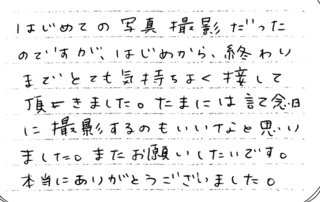 はじめての写真撮影だった
のですが、はじめから、終わり
までとても気持ちよく接して
頂きました。たまには記念日
に撮影するのもいいなと思い
ました。またお願いしたいです。
本当にありがとうございました。